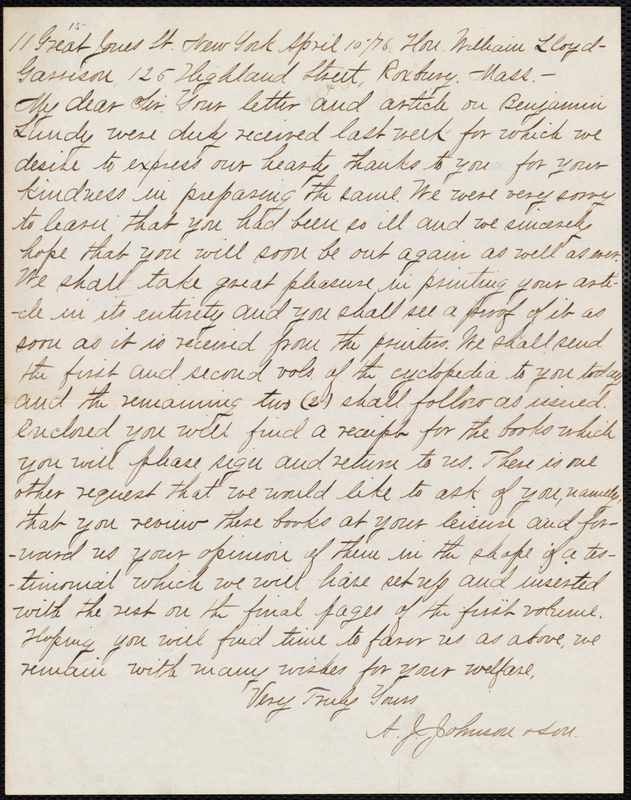 15
11 Great Jones St. New York April 10-/76. Hon. William Lloyd-
Garrison, 125 Highland Street, Roxbury, Mass.-
My dear Sir. Your letter and article on Benjamin
Lundy were duly received last week for which we
desire to express our hearty thanks to you for your
kindness in preparing the same. We were very sorry
to learn that you had been so ill and we sincerely
hope that you will soon be out again as well as ever.
We shall take great pleasure in printing your arti-
-cle in its entirety and you shall see a proof of it as
soon as it is received from the printers. We shall send
the first and second vols of the cyclopedia to you today
and the remaining two (2) shall follow as issued.
Enclosed you will find a receipt for the books which
you will please sign and return to us. There is one
other request that we would like to ask of you, namely,
that you review these books at your leisure and for-
-ward us your opinion of them in the shape of a tes-
-timonial which we will have set up and inserted
with the rest on the final pages of the first volume.
Hoping you will find time to favor us as above, we
remain with many wishes for your welfare,
Very Truly Yours
A. J. Johnson & Son.